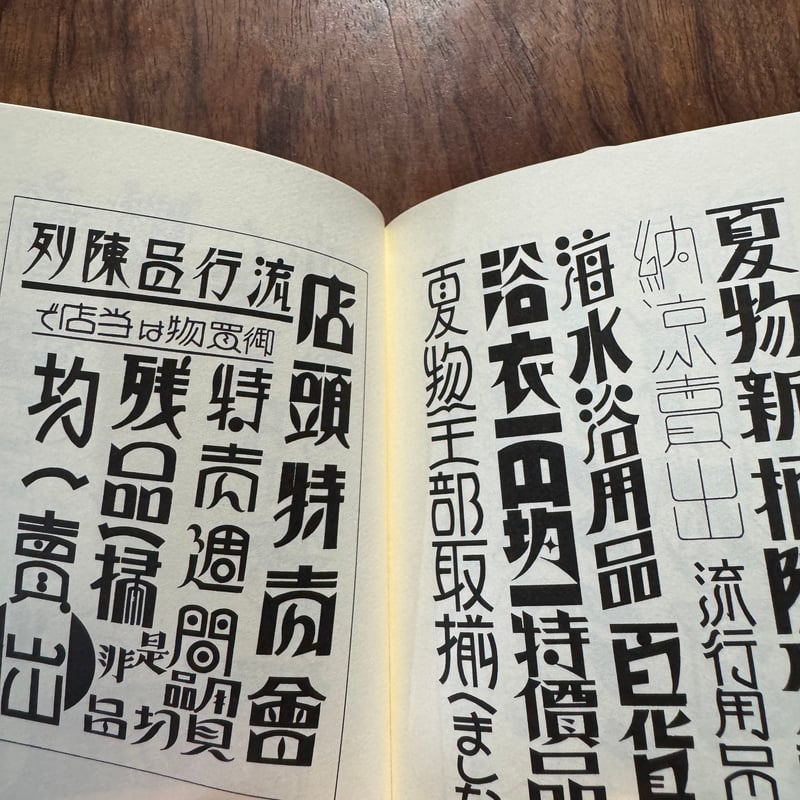 夏物新柄陳
納涼賣出
流行用品
海水浴用品
百貨
浴衣一円均一特價品
夏物全部取揃へました
流行品陳列
御買物は当店で
店頭特売會
特売週間
残品一掃
均一賣出
是非